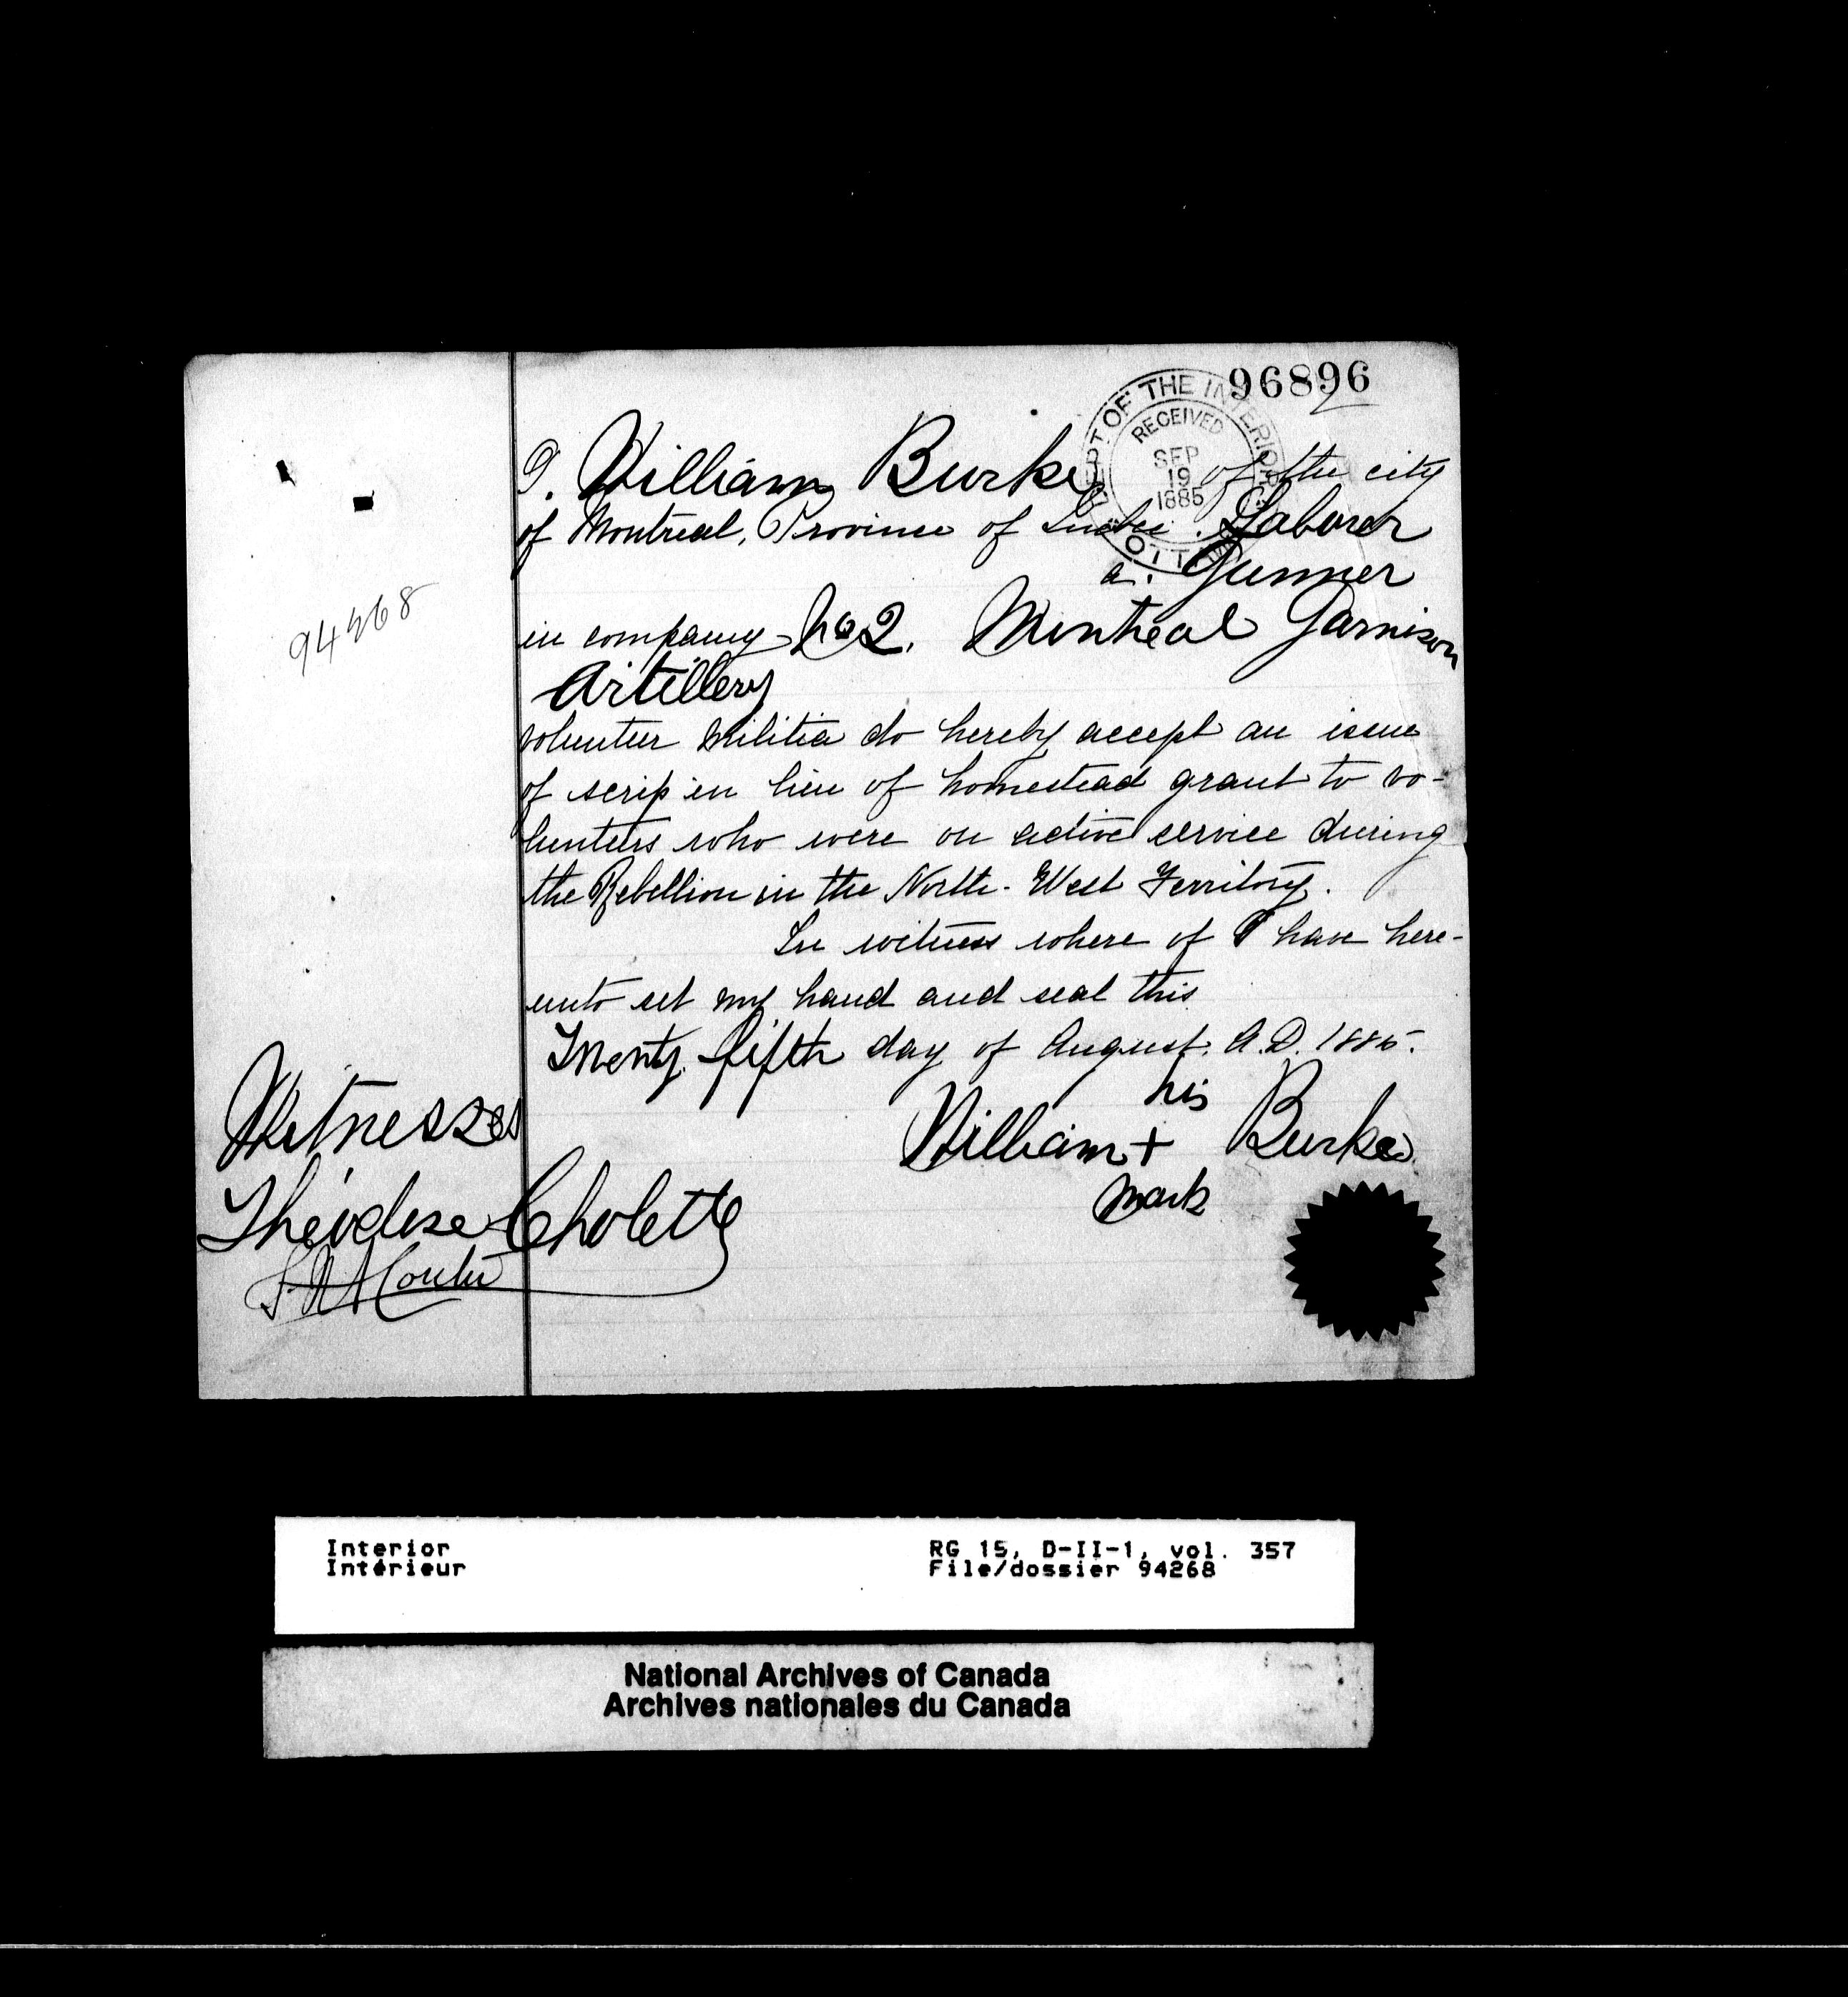 96896
DEPT OF THE INTERIOR
RECEIVED
SEP
19
1885
I. William Burke of the city
of Montreal, Province of Quebec. Laborer
a. Gunner
in company No 2. Montreal Garnison
Artillery
volunteer militia do hereby accept an issue
of scrip in lieu of homestead grant to vo-
lunteers who were on active service during
the Rebellion in the North-West Territory.
In witness where of I have here-
unto set my hand and seal this
Twenty fifth day of August. A.D. 1885.
his
William + Burke
mark
94268
Witnesses
Théodose Cholette
Interior
Intérieur
RG 15, D-II-1, vol. 357
File/dossier 94268
National Archives of Canada
Archives nationales du Canada